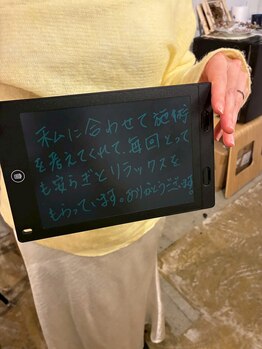 私に合わせて施術
を考えてくれて、毎回とって
も安らぎとリラックスを
もらっています。ありがとうございます